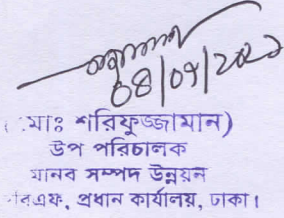 08/09/2021
মোঃ শরিফুজ্জামান)
উপ পরিচালক
মানব সম্পদ উন্নয়ন
প্রধান কার্যালয়, ঢাকা।